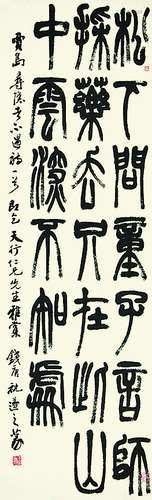 松下問童子言師
採藥去只在此山
中雲深不知處
賈島尋隱者不遇詩一首即乞天行仁兄先生雅賞 錢唐祝遂之篆